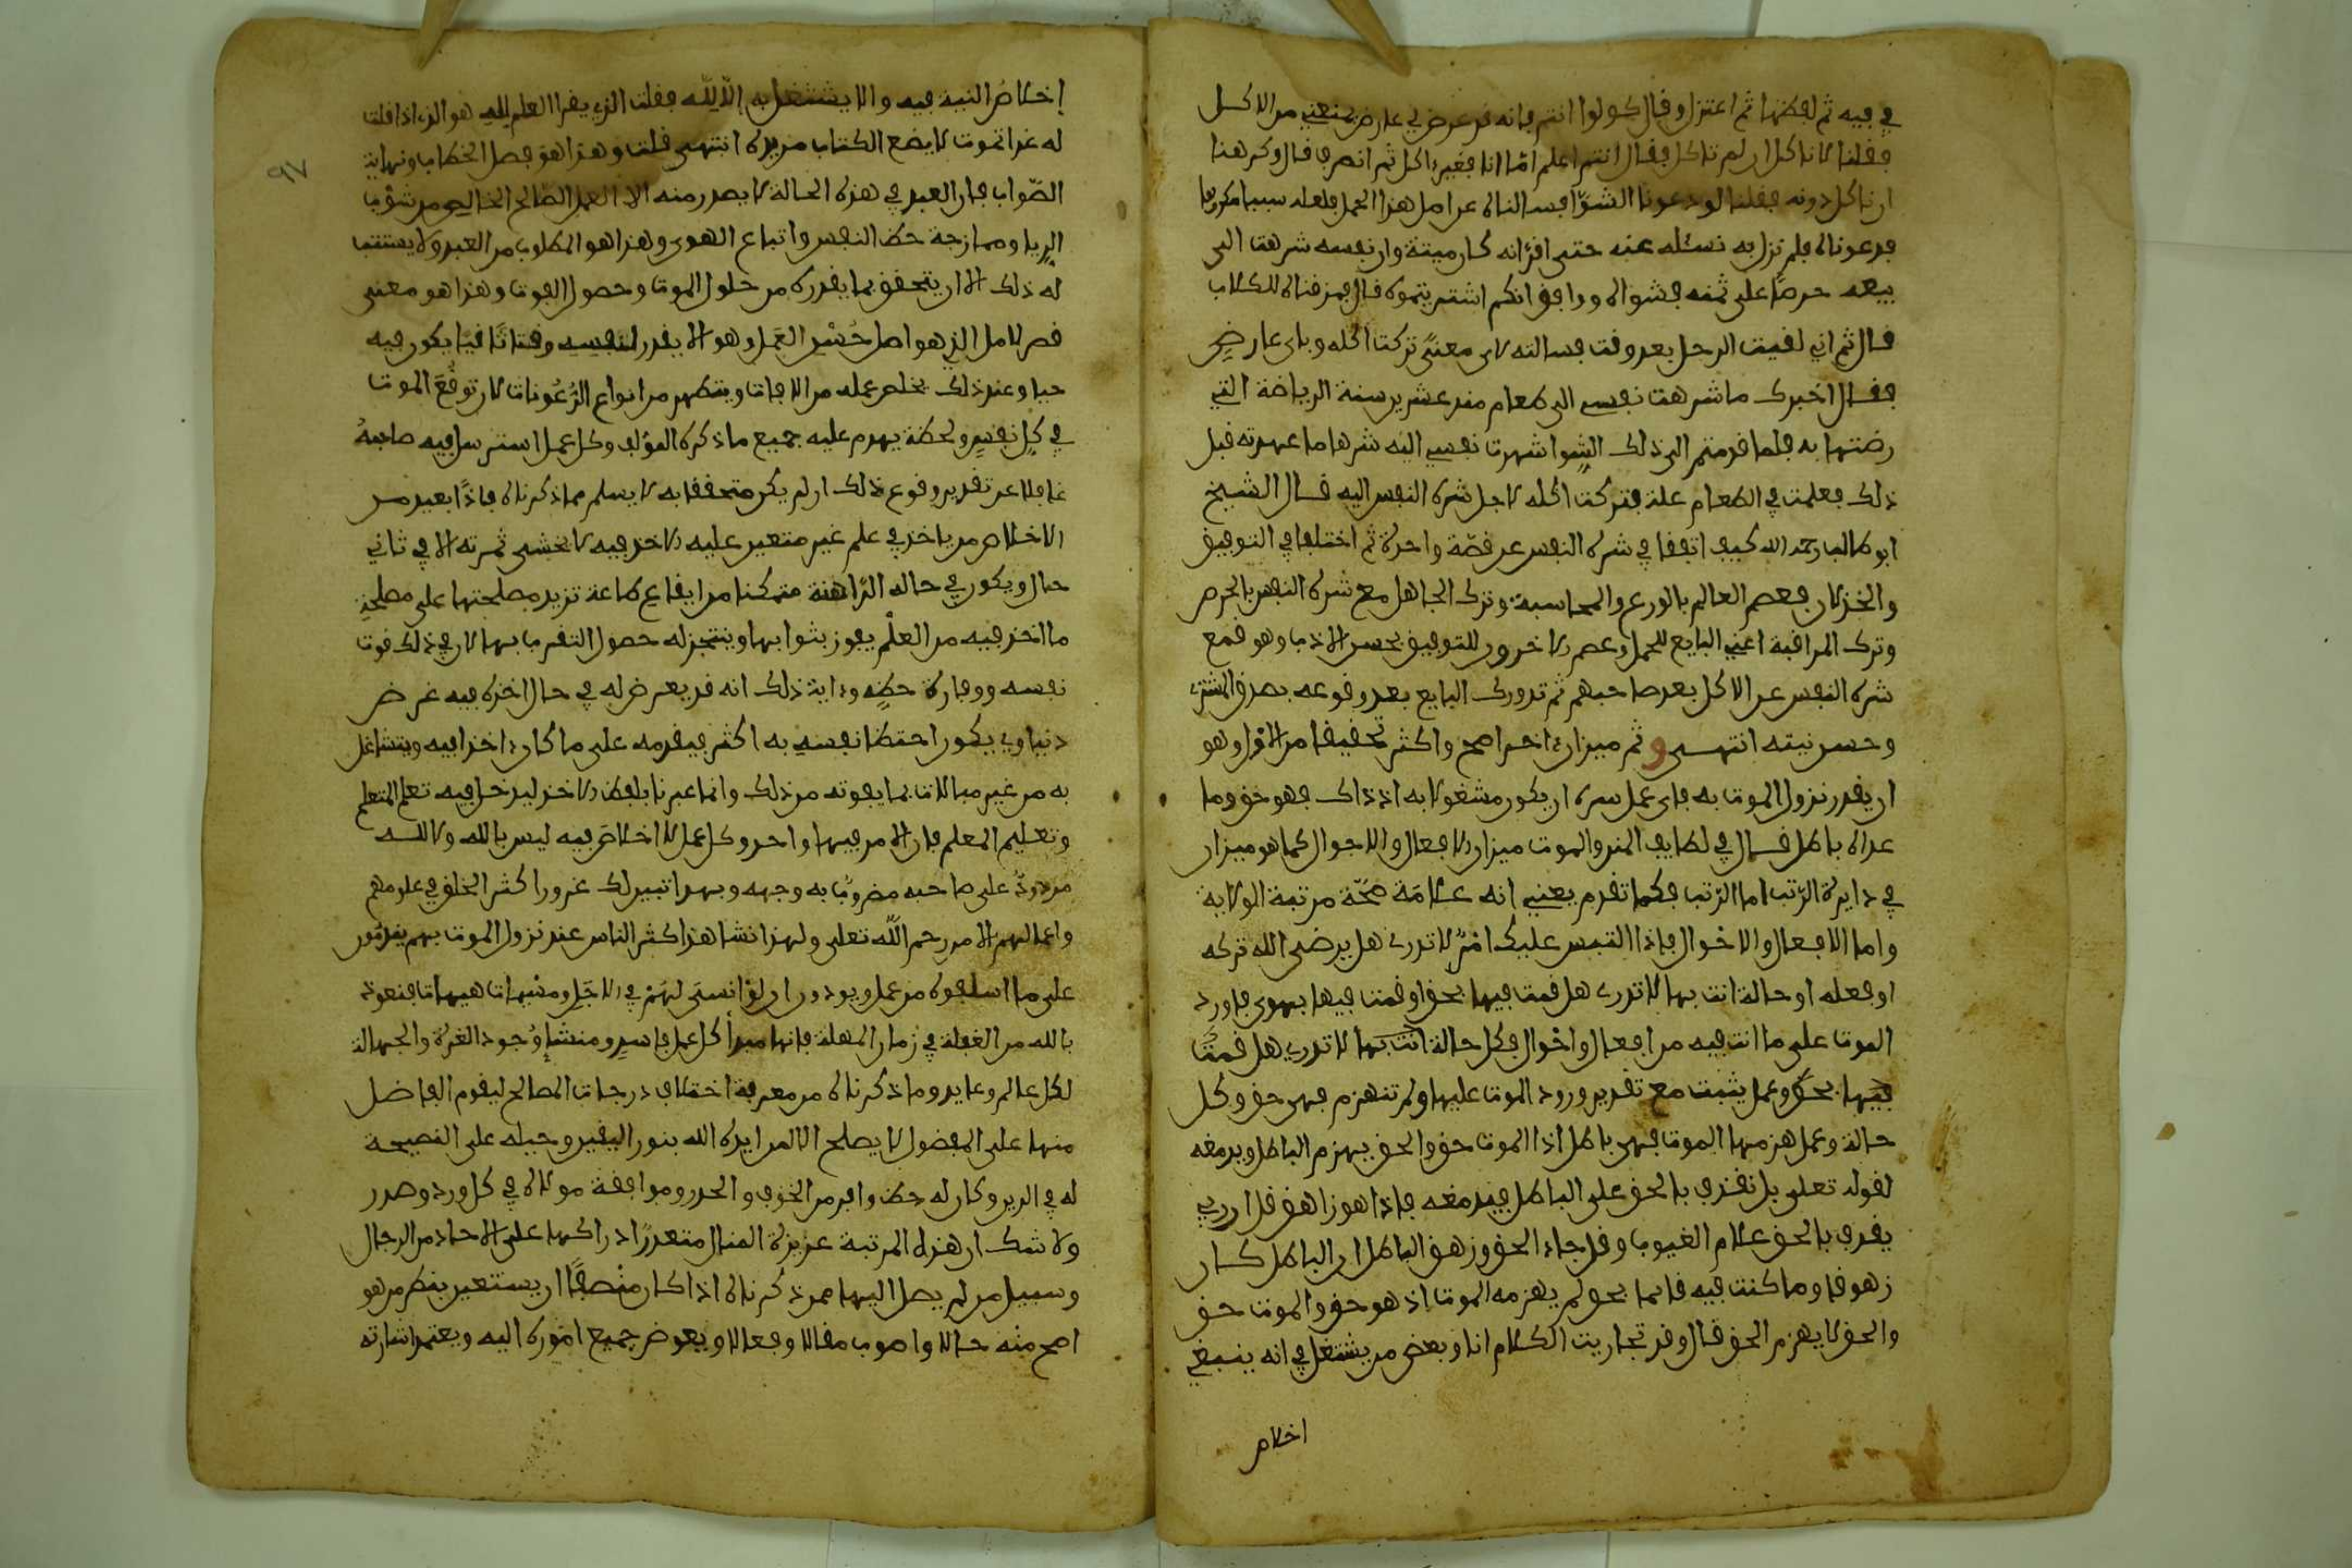 في فيه ثم لفظها ثم اعتزل وقال كولوا انتم فانه قد عرض لي عارض يمنعني من الاكل
فقلنا لا ناكل ان لم تاكل فقال انتم اعلم اما انا فغير ءاكل ثم انصرف قال وكرهنا
ان ناكل دونه فقلنا لو دعونا الشوا فسالناه عن اصل هذا الحمل فلعله سببا مكروها
فدعوناه فلم نزل به نسئله عنه حتى اقر انه كان ميتة وان نفسه شرهت الى
بيعه حرصا على ثمنه فشواه ووافق انكم اشتريتموه قال فمزقناه للكلاب
قال ثم اني لقيت الرجل بعد وقت فسالته لاي معنى تركت اكله وباي عارض
فقال اخبرك ما شرهت نفسي الى طعام منذ عشرين سنة الرياضة التي
رضتها به فلما قدمتم الى ذلك الشوا شهرت نفسي اليه شرها ما عهدته قبل
ذلك فعلمت في الطعام علة فتركت اكله لاجل شره النفس اليه قال الشيخ
ابو طالب رحمه الله كيف اتفقا في شره النفس عن قصة واحدة ثم اختلفا في التوفيق
والخذلان فعصم العالم بالورع والمحاسبة وترك الجاهل مع شره النفس بالحرص
وترك المراقبة اعني البايع للحمل وعصم الاخرون للتوفيق بحسن الادب وهو قمع
شره النفس عن الاكل بعد صاحبهم ثم تدورك البايع بعد وقوعه بصدق المشتري
وحسن نيته انتهى و ثم ميزان ءاخر اصح واكثر تحقيقا من الاول وهو
ان يقدر نزول الموت به فاي عمل سره ان يكون مشغولا به اذ ذاك فهو حق وما
عداه باطل قال في لطايف المنن والموت ميزان الافعال والاحوال كما هو ميزان
في دايرة الرتب اما الرتب فكما تقدم يعني انه علامة صحة مرتبة الولاية
واما الافعال والاحوال فاذا التبس عليك امر لا تدري هل يرضى الله تركه
او فعله او حالة انت بها لا تدري هل قمت فيها بحق او قمت فيها بهوى فاورد
الموت على ما انت فيه من افعال واحوال فكل حالة انت بها لا تدري هل قمت
فيها بحق وعمل يثبت مع تقدير ورود الموت عليها ولم تنهزم فهي حق وكل
حالة وعمل هزمها الموت فهي باطل اذا الموت حق والحق يهزم الباطل ويدمغه
لقوله تعلى بل نقذف بالحق على الباطل فيدمغه فاذا هو زاهق قل ان ربي
يقذف بالحق علام الغيوب وقل جاء الحق وزهق الباطل ان الباطل كان
زهوقا وما كنت فيه قايما بحق لم يهزمه الموت اذ هو حق والموت حق
والحق لا يهزم الحق قال وقد تجاريت الكلام انا وبعض من يشتغل في انه ينبغي
اخلاص
٩٧
إخلاص النية فيه والا يشتغل به إلا لله فقلت الذي يقرا العلم لله هو الذي اذا قلت
له غدا تموت لا يضع الكتاب من يده انتهى قلت وهذا هو فصل الخطاب ونهاية
الصواب فان العبد في هذه الحالة لا يصدر منه الا العمل الصالح الخالص من شوب
الرياء وممازجة حظ النفس واتباع الهوى وهذا هو المطلوب من العبد ولا يستتب
له ذلك الا ان يتحقق بما يقدره من حلول الموت وحصول الفوت وهذا هو معنى
قصر الامل الذي هو اصل حسن العمل وهو الا يقدر لنفسه وقتا ثانيا يكون فيه
حيا وعند ذلك يخلص عمله من الافات ويتطهر من انواع الرعونات لان توقع الموت
في كل نفس ولحظة يهدم عليه جميع ما ذكره المؤلف وكل عمل استرسل فيه صاحبه
غافلا عن تقدير وقوع ذلك ان لم يكن متحققا به لا يسلم مما ذكرناه فاذا بعيد من
الاخلاص من ياخذ في علم غير متعين عليه الاخذ فيه لا يخشى ثمرته الا في ثاني
حال ويكون في حاله الراهنة متمكنا من ايقاع طاعة تزيد مصلحتها على مصلحة
ما اخذ فيه من العلم يفوز بثوابها ويتنجز له حصول التقرب بها لان في ذلك قوت
نفسه ووفارة حظه وءاية ذلك انه قد يعرض له في حال اخذه فيه غرض
دنياوي يكون احتظا نفسه به اكثر فيقدمه على ما كان ءاخذا فيه ويتشاغل
به من غير مبالات بما يفوته من ذلك وانما عبرنا بلفظ الاخذ ليدخل فيه تعلم المتعلم
وتعليم المعلم فان الامر فيهما واحد وكل عمل لا اخلاص فيه ليس بالله ولا لله
مردود على صاحبه مضروب به وجهه وبهذا تبين لك غرور اكثر الخلق في علومهم
واعمالهم الا من رحم الله تعلى ولهذا تشاهد اكثر الناس عند نزول الموت بهم يندمون
على ما اسلفوه من عمل ويودون ان لو انسئ لهم في الاجل ومنبهات هيهات فنعوذ
بالله من الغفلة في زمان المهلة فانها مبدأ كل عمل فاسد ومنشأ وجود الغرة والجهالة
لكل عالم وعابد وما ذكرناه من معرفة اختلاف درجات المصالح ليقوم الفاضل
منها على المفضول لا يصلح الا لمن ايده الله بنور اليقين وجبله على النصيحة
له في الدين وكان له حظ وافر من الخوف والحذر وموافقة مولاه في كل ورد وصدر
ولا شك ان هذه المرتبة عزيزة المنال متعذر ادراكها على الاحاد من الرجال
وسبيل من لم يصل اليها ممن ذكرناه اذا كان منصفا ان يستعين بنظر من هو
اصح منه حالا واصوب مقالا وفعالا ويفوض جميع اموره اليه ويعتمد اشارته